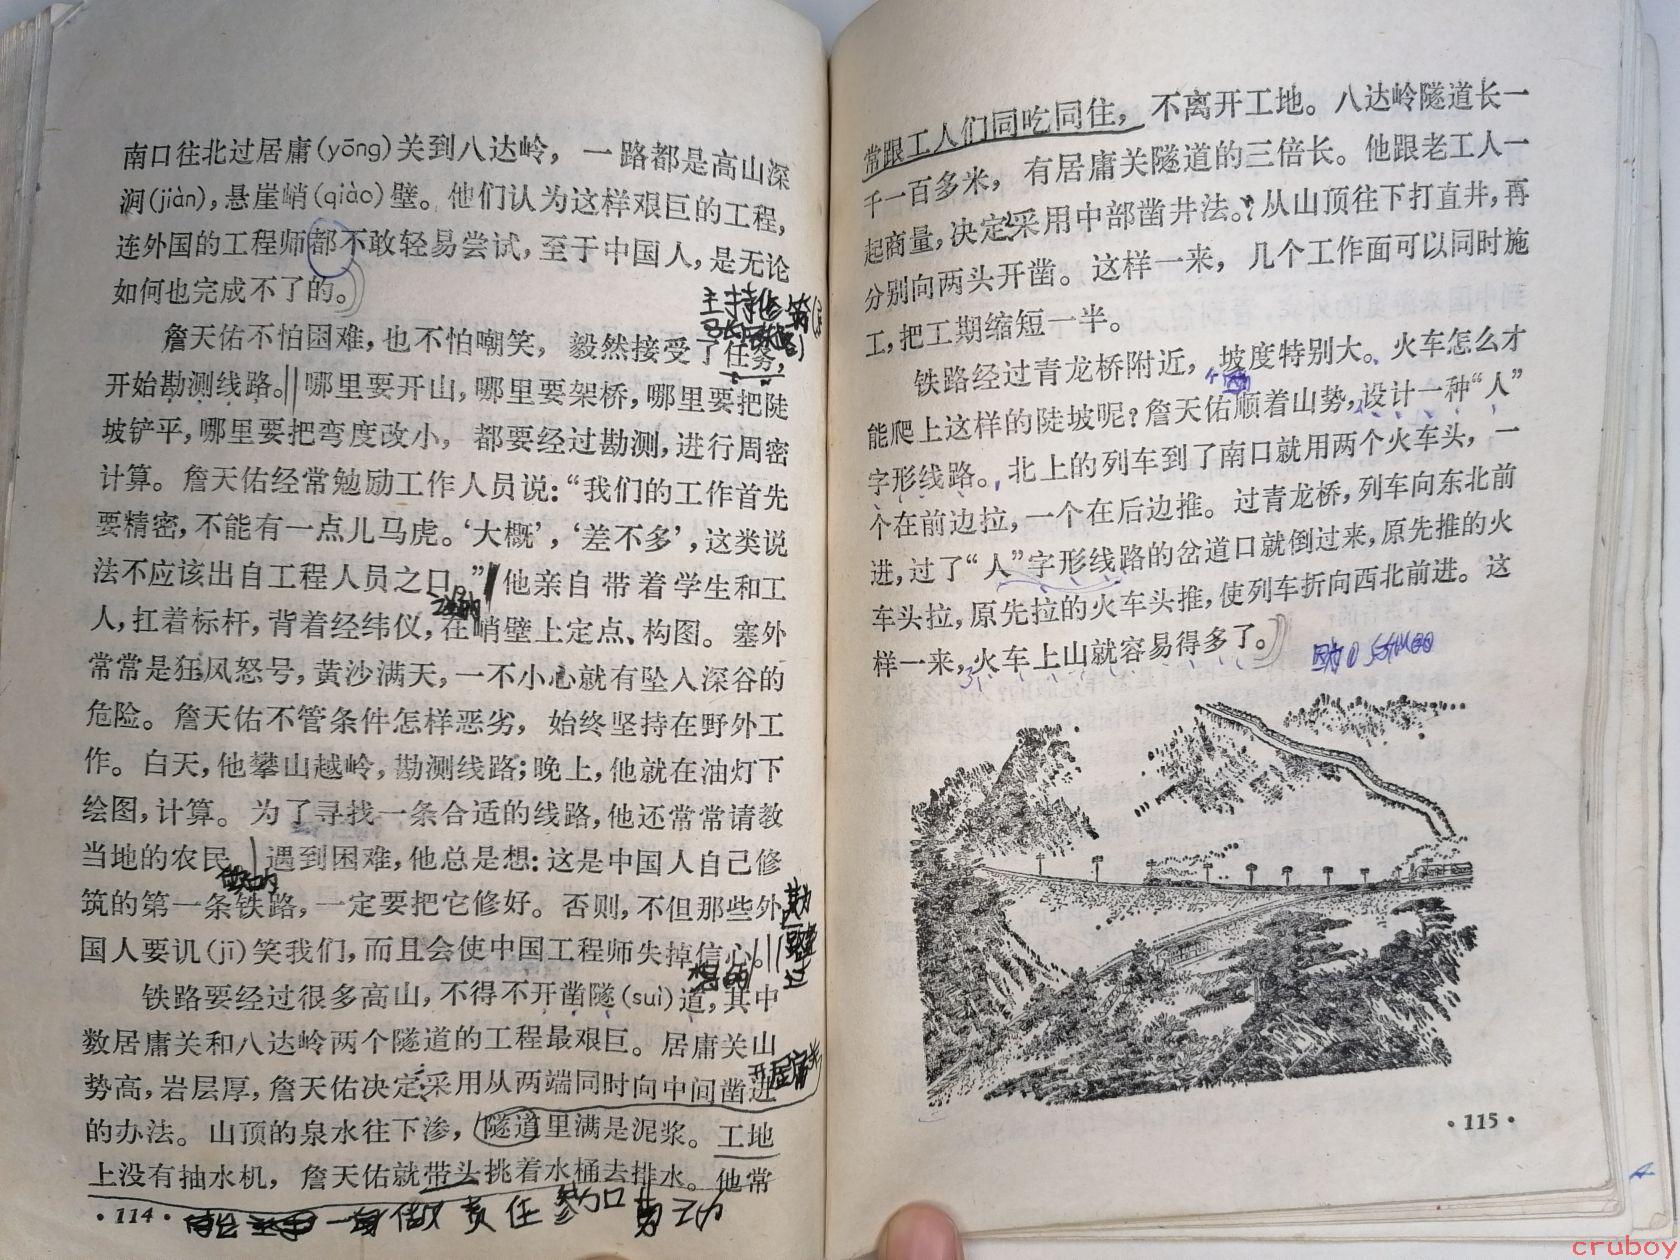 南口往北过居庸(yōng)关到八达岭，一路都是高山深
涧(jiàn)，悬崖峭(qiào)壁。他们认为这样艰巨的工程，
连外国的工程师都不敢轻易尝试，至于中国人，是无论
如何也完成不了的。
主持修筑
詹天佑不怕困难，也不怕嘲笑，毅然接受了任务，
开始勘测线路。哪里要开山，哪里要架桥，哪里要把陡
坡铲平，哪里要把弯度改小，都要经过勘测，进行周密
计算。詹天佑经常勉励工作人员说：“我们的工作首先
要精密，不能有一点儿马虎。‘大概’，‘差不多’，这类说
法不应该出自工程人员之口。”他亲自带着学生和工
人，扛着标杆，背着经纬仪，在峭壁上定点、构图。塞外
常常是狂风怒号，黄沙满天，一不小心就有坠入深谷的
危险。詹天佑不管条件怎样恶劣，始终坚持在野外工
作。白天，他攀山越岭，勘测线路；晚上，他就在油灯下
绘图，计算。为了寻找一条合适的线路，他还常常请教
当地的农民。遇到困难，他总是想：这是中国人自己修
筑的第一条铁路，一定要把它修好。否则，不但那些外
国人要讥(jī)笑我们，而且会使中国工程师失掉信心。
想的
铁路要经过很多高山，不得不开凿隧(suì)道，其中
数居庸关和八达岭两个隧道的工程最艰巨。居庸关山
居庸关
势高，岩层厚，詹天佑决定采用从两端同时向中间凿进
的办法。山顶的泉水往下渗，隧道里满是泥浆。工地
上没有抽水机，詹天佑就带头挑着水桶去排水。他常
·114·
做责任参加劳动
常跟工人们同吃同住，不离开工地。八达岭隧道长一
千一百多米，有居庸关隧道的三倍长。他跟老工人一
起商量，决定采用中部凿井法。从山顶往下打直井，再
分别向两头开凿。这样一来，几个工作面可以同时施
工，把工期缩短一半。
铁路经过青龙桥附近，坡度特别大。火车怎么才
能爬上这样的陡坡呢？詹天佑顺着山势，设计一种“人”
字形线路。北上的列车到了南口就用两个火车头，一
个在前边拉，一个在后边推。过青龙桥，列车向东北前
进，过了“人”字形线路的岔道口就倒过来，原先推的火
车头拉，原先拉的火车头推，使列车折向西北前进。这
样一来，火车上山就容易得多了。
·115·
cruboy